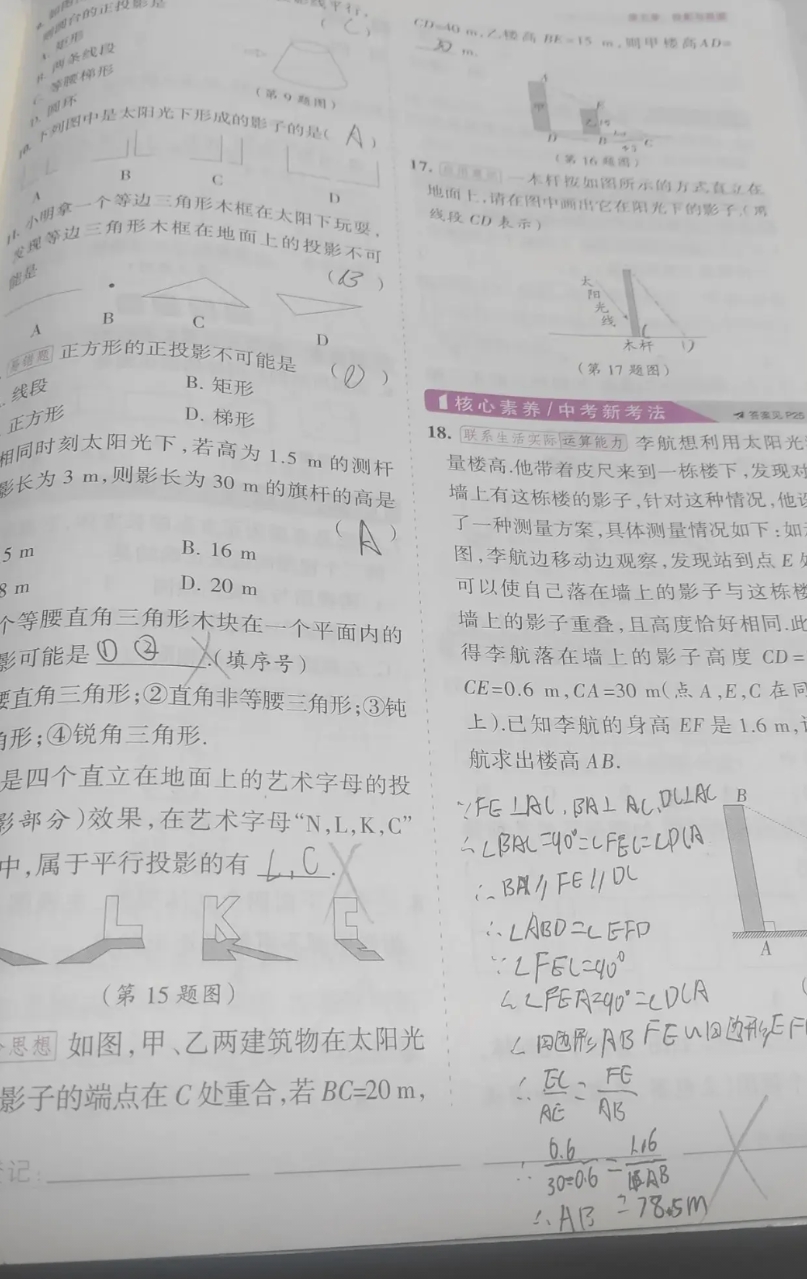 则圆台的正投影是
( C )
A. 矩形
B. 两条线段
C. 等腰梯形
D. 圆环
(第 9 题图)
10. 下列图中是太阳光下形成的影子的是( A )
A
B
C
D
11. 小明拿一个等边三角形木框在太阳下玩耍,
发现等边三角形木框在地面上的投影不可
能是
( B )
A
B
C
D
易错题 正方形的正投影不可能是
( D )
线段
B. 矩形
正方形
D. 梯形
相同时刻太阳光下,若高为 1.5 m 的测杆
影长为 3 m,则影长为 30 m 的旗杆的高是
( A )
5 m
B. 16 m
8 m
D. 20 m
个等腰直角三角形木块在一个平面内的
影可能是 ① ② .(填序号)
腰直角三角形;②直角非等腰三角形;③钝
角形;④锐角三角形.
是四个直立在地面上的艺术字母的投
影部分)效果,在艺术字母“N,L,K,C”
中,属于平行投影的有 L,C .
L K C
(第 15 题图)
思想 如图,甲、乙两建筑物在太阳光
影子的端点在 C 处重合,若 BC=20 m,
记:
CD=40 m,乙楼高 BE=15 m,则甲楼高 AD=
30 m.
A
甲
E
乙
D
B
C
(第 16 题图)
17. 一木杆按如图所示的方式直立在
地面上,请在图中画出它在阳光下的影子.(用
线段 CD 表示)
太
阳
光
线
C
木杆
D
(第 17 题图)
核心素养/中考新考法
答案见 P25
18. 联系生活实际 运算能力 李航想利用太阳光
量楼高.他带着皮尺来到一栋楼下,发现对
墙上有这栋楼的影子,针对这种情况,他设
了一种测量方案,具体测量情况如下:如
图,李航边移动边观察,发现站到点 E 处
可以使自己落在墙上的影子与这栋楼
墙上的影子重叠,且高度恰好相同.此
得李航落在墙上的影子高度 CD=
CE=0.6 m,CA=30 m(点 A,E,C 在同
上).已知李航的身高 EF 是 1.6 m,
航求出楼高 AB.
∵FE⊥AC,BA⊥AC,DC⊥AC
∴∠BAC=90°=∠FEC=∠DCA
∴BA//FE//DC
∴∠ABD=∠EFD
∵∠FEC=90°
∴∠FEA=90°=∠DCA
∴四边形ABFE∽四边形EF
∴EC/AE=FE/AB
∴0.6/30-0.6=1.16/AB
∴AB=78.5m
B
A